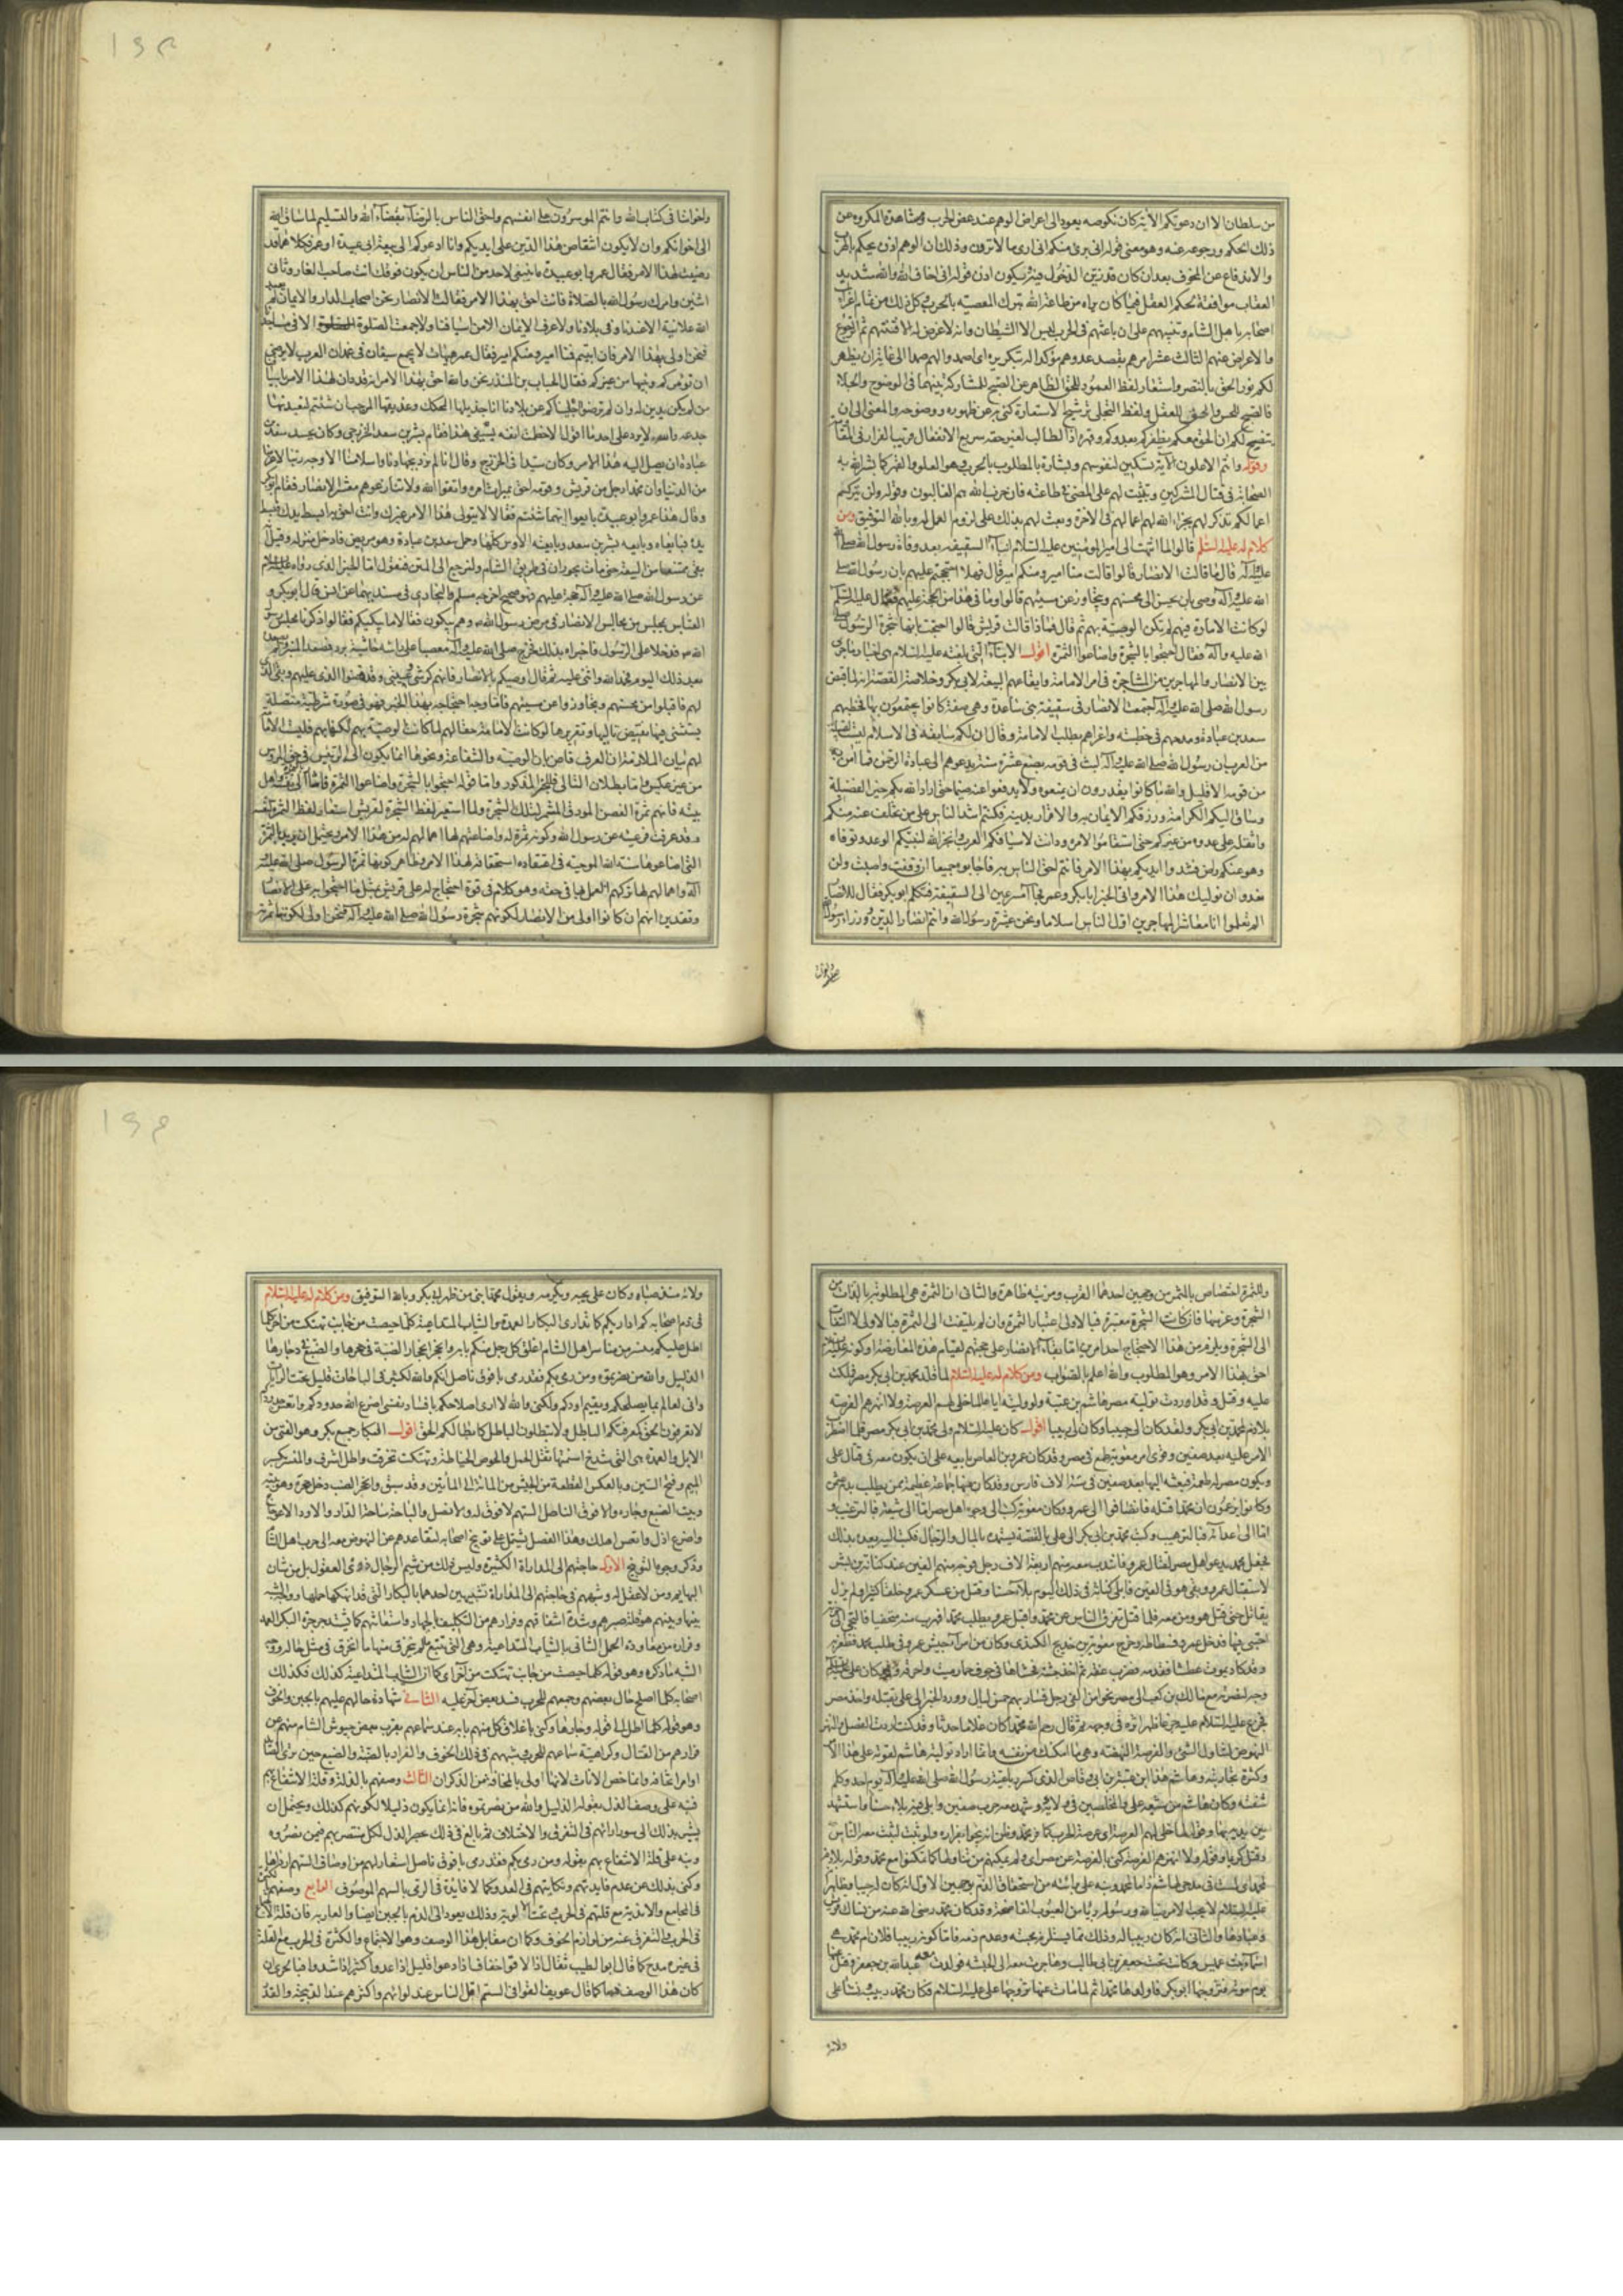 من سلطان الا ان دعوتكم الآية كان نكوصه يعود الى اعراض الوهم عند عض الحرب ومشاهدة المكروه عن
ذلك الحكم ورجوعه عنه وهو معنى قوله انى برئ منكم انى ارى ما لا ترون وذلك ان الوهم اذن يحكم بالهرب
والاندفاع عن المخوف بعد ان كان قد زين الدخول فيه فيكون اذن قوله انى اخاف الله والله شديد
العقاب موافقة لحكم العقل فيما كان يراه من طاعة الله بترك المعصية بالحرب
اصحابه باهل الشام وتنبيههم على ان باعثهم فى الحرب ليس الا الشيطان وانه لا غرض له الا فتنتهم ثم الرجوع
والاعراض عنهم الثالث عشر امرهم بقصد عدوهم مؤكدا له بتكريره اى اصمدوا لهم صمدا الى غاية ان يظهر
لكم نور الحق بالنصر واستعار لفظ العمود للحق الظاهر عن الصبح للمشاركة بينهما فى الوضوح والجلاء
فالصبح للحس والحق للعقل ولفظ التجلى ترشيح الاستعارة كنى به عن ظهوره ووضوحه والمعنى الى ان
يتضح لكم ان الحق معكم بظفركم بعدوكم وقهره اذ الطالب لغير حقه سريع الانفعال قريب الفرار فى المقام
وقوله وانتم الاعلون الآية تسكين لنفوسهم وبشارة بالمطلوب بالحرب وهو العلو والقهر كما بشر الله به
الصحابة فى قتال المشركين وتثبيت لهم على المضى فى طاعته فان حزب الله هم الغالبون وقوله ولن يتركم
اعمالكم تذكير لهم بجزاء الله لهم اعمالهم فى الآخرة وبعث لهم بذلك على لزوم العمل له وبالله التوفيق ومن
كلام له عليه السلم قالوا لما انتهت الى امير المؤمنين عليه السلام انباء السقيفة بعد وفاة رسول الله صلى الله
عليه وآله قال ما قالت الانصار قالوا قالت منا امير ومنكم امير قال فهلا احتججتم عليهم بان رسول الله صلى
الله عليه وآله وصى بان يحسن الى محسنهم ويتجاوز عن مسيئهم قالوا وما فى هذا من الحجة عليهم فقال عليه السلم
لو كانت الامارة فيهم لم تكن الوصية بهم ثم قال فماذا قالت قريش قالوا احتجت بانها شجرة الرسول صلى
الله عليه وآله فقال احتجوا بالشجرة واضاعوا الثمرة اقول الانباء التى بلغته عليه السلام هى اخبار ما جرى
بين الانصار والمهاجرين من المشاجرة فى امر الامامة وايقاعهم البيعة لابى بكر وخلاصة القصة انه لما قبض
رسول الله صلى الله عليه وآله اجتمعت الانصار فى سقيفة بنى ساعدة وهى صفة كانوا يجتمعون بها فخطبهم
سعد بن عبادة ومدحهم فى خطبته واغراهم بطلب الامامة وقال ان لكم سابقة فى الاسلام ليست لقبيلة
من العرب ان رسول الله صلى الله عليه وآله لبث فى قومه بضع عشرة سنة يدعوهم الى عبادة الرحمن فما آمن به
من قومه الا قليل والله ما كانوا يقدرون ان يمنعوه ولا يدفعوا عنه ضيما حتى اراد الله بكم خير الفضيلة
وساق اليكم الكرامة ورزقكم الايمان به والاقرار بدينه فكنتم اشد الناس على من تخلف عنه منكم
واثقله على عدوه من غيركم حتى استقاموا لامره ودانت لاسيافكم العرب وانجز الله لنبيكم الوعد وتوفاه
وهو عنكم راض فشدوا ايديكم بهذا الامر فانتم احق الناس به فاجابوه جميعا ان وفقت واصبت ولن
نعدو ان نوليك هذا الامر واتى الخبر ابا بكر وعمر فجاآ مسرعين الى السقيفة فتكلم ابو بكر فقال للانصار
الم تعلموا انا معاشر المهاجرين اول الناس اسلاما ونحن عشيرة رسول الله وانتم انصار الدين ووزراء رسول الله
واخواننا فى كتاب الله وانتم المؤثرون على انفسهم واحق الناس بالرضاء بقضاء الله والتسليم لما ساق الله
الى اخوانكم وان لا يكون انتقاض هذا الدين على ايديكم وانا ادعوكم الى بيعة ابى عبيدة او عمر فكلاهما قد
رضيت لهذا الامر فقال عمر وابو عبيدة ما ينبغى لاحد من الناس ان يكون فوقك انت صاحب الغار وثانى
اثنين وامرك رسول الله بالصلاة فانت احق بهذا الامر فقالت الانصار نحن اصحاب الدار والايمان لم يعبد
الله علانية الا عندنا وفى بلادنا ولا عرف الايمان الا من اسيافنا ولا جمعت الصلوة الا فى مساجدنا
فنحن اولى بهذا الامر فان ابيتم فمنا امير ومنكم امير فقال عمر هيهات لا يجمع سيفان فى غمد ان العرب لا ترضى
ان تؤمركم ونبيها من غيركم فقال الحباب بن المنذر نحن والله احق بهذا الامر انه قد دان لهذا الامر باسيافنا
من لم يكن يدين له وان لم ترضوا اجليناكم عن بلادنا انا جذيلها المحكك وعذيقها المرجب ان شئتم لنعيدنها
جذعة والله لا يرد على احد ما اقول الا حطمت انفه بسيفى هذا فقام بشير بن سعد الخزرجى وكان يحسد سعد بن
عبادة ان يصل اليه هذا الامر وكان سيدا فى الخزرج وقال انا لم نرد بجهادنا واسلامنا الا وجه ربنا لا غرضا
من الدنيا وان محمدا رجل من قريش وقومه احق بميراث امره واتقوا الله ولا تنازعوهم معشر الانصار فقام ابو بكر
وقال هذا عمر وابو عبيدة بايعوا ايهما شئتم فقالا لا يتولى هذا الامر غيرك وانت احق به ابسط يدك فبسط
يده فبايعاه وبايعه بشير بن سعد وبايعته الاوس كلها وحمل سعد بن عبادة وهو مريض فادخل منزله وقيل
بقى ممتنعا من البيعة حتى مات بحوران فى طريق الشام ولنرجع الى المتن فنقول اما الخبر الذى رواه عليه السلام
عن رسول الله صلى الله عليه وآله حجة عليهم فهو صحيح اخرجه مسلم والبخارى فى مسنديهما عن انس قال مر ابو بكر و
العباس بمجلس من مجالس الانصار فى مرض رسول الله وهم يبكون فقالا ما يبكيكم فقالوا ذكرنا مجلس رسول
الله فدخلا على الرسول فاخبراه بذلك فخرج صلى الله عليه وآله معصبا على راسه حاشية برد فصعد المنبر ولم يصعده
بعد ذلك اليوم فحمد الله واثنى عليه ثم قال اوصيكم بالانصار فانهم كرشى وعيبتى وقد قضوا الذى عليهم وبقى الذى
لهم فاقبلوا من محسنهم وتجاوزوا عن مسيئهم فاما وجه احتجاجه بهذا الخبر فهو فى صورة شرطية متصلة
يستثنى فيها نقيض تاليها وتقريرها لو كانت الامامة حقا لهم لما كانت الوصية بهم لكنها بهم فليست الامامة
لهم بيان الملازمة ان العرف قاض بان الوصية والشفاعة ونحوها انما يكون الى الرئيس فى حق المرؤس
من غير عكس واما بطلان التالى فللخبر المذكور واما قوله احتجوا بالشجرة واضاعوا الثمرة
بيته فانهم ثمرة الغصن المورق المثمر لتلك الشجرة ولما استعير لفظ الشجرة لقريش استعار لفظ الثمرة لنفسه
وقد عرفت فرعيته عن رسول الله وكونه ثمرة له واضاعتهم لها اهمالهم له من هذا الامر ويحتمل ان يريد بالثمرة
التى اضاعوها سنة الله الموجبة فى اعتقاده استحقاقه لهذا الامر وظاهر كونها ثمرة الرسول صلى الله عليه
وآله واهمالهم لها تركهم العمل بها فى حقه وهو كلام فى قوة احتجاج له على قريش بمثل ما احتجوا به على الانصار
وتقديره انهم ان كانوا اولى من الانصار لكونهم شجرة رسول الله صلى الله عليه وآله فنحن اولى لكوننا ثمرة
وللثمرة اختصاص بالشجر من وجهين احدهما القرب ومزيته ظاهرة والثانى ان الثمرة هى المطلوبة بالذات من
الشجرة وغرسها فان كانت الشجرة معتبرة فبالاولى اعتبار الثمرة وان لم يلتفت الى الثمرة فبالاولى لا التفات
الى الشجرة ويلزم من هذا الاحتجاج احد امرين اما بقاء الانصار على حجتهم لقيام هذه المعارضة او كونه عليه السلم
احق بهذا الامر وهو المطلوب والله اعلم بالصواب ومن كلام له عليه السلام لما قلد محمد بن ابى بكر مصر فملكت
عليه وقتل وقد اردت تولية مصر هاشم بن عتبة ولو وليته اياها لما خلى لهم العرصة ولا انهزهم الفرصة
بلا ذم لمحمد بن ابى بكر ولقد كان الى حبيبا وكان لى ربيبا اقول كان عليه السلام ولى محمد بن ابى بكر مصر فلما اضطرب
الامر عليه بعد صفين وقوى امر معوية طمع فى مصر وقد كان عمرو بن العاص بايعه على ان يكون معه فى قتال على
ويكون مصر له طعمة فبعثه اليها بعد صفين فى ستة آلاف فارس وقد كان فيها جماعة عظيمة ممن يطلب بدم عثمن
وكانوا يزعمون ان محمدا قتله فانضافوا الى عمرو وكان معوية كتب الى وجوه اهل مصر اما الى شيعته فبالترغيب و
اما الى اعدائه فبالترهيب وكتب محمد بن ابى بكر الى على بالقصة يستمده بالمال والرجال فكتب اليه يعده بذلك
فجعل محمد يدعو اهل مصر لقتال عمرو فانتدب معه منهم اربعة آلاف رجل فوجه منهم الفين عند كنانة بن بشر
لاستقبال عمرو وبقى هو فى الفين فابلى كنانة فى ذلك اليوم بلاء حسنا وقتل من عسكر عمرو خلقا كثيرا ولم يزل
يقاتل حتى قتل هو ومن معه فلما قتل تفرق الناس عن محمد واقبل عمرو يطلب محمدا فهرب منه متخفيا فالتجى الى خربة
اختبى فيها فدخل عمرو فسطاطه وخرج معوية بن خديج الكندى وكان من امراء جيش عمرو فى طلب محمد فظفر به
وقد كاد يموت عطشا فقدمه فضرب عنقه ثم اخذ جثته فحشاها فى جوف حمار ميت واحرقه وقد كان على عليه السلم
وجه لنصرته مع مالك بن كعب الى مصر نحوا من الفى رجل فسار بهم خمس ليال وورد الخبر الى على بقتله واخذ مصر
فجزع عليه السلام عليه حتى ظهر اثره فى وجهه ثم قال رحم الله محمدا كان غلاما حدثا وقد كنت اردت الفصل والنهزة
النهوض لتناول الشئ والفرصة النهضة وهى ما امكنك من نفسه وانما اراد تولية هاشم لقوته على هذا الامر
وكثرة تجاربه وهاشم هذا ابن عتبة بن ابى وقاص الذى كسر رباعية رسول الله صلى الله عليه وآله يوم احد وكلم
شفته وكان هاشم من شيعة على والمخلصين فى ولايته وشهد معه حرب صفين وابلى فيه بلاء حسنا واستشهد
بين يديه بها وقوله لما خلى لهم العرصة اى عرصة الحرب كما فر محمد وظن انه ينجو بفراره ولو ثبت لثبت معه الناس
وقتل كريما وقوله ولا انهزهم الفرصة كنى بالفرصة عن مصر اى ولم يمكنهم من تناولها كما تمكنوا مع محمد وقوله بلا ذم
لمحمد اى لست فى مدحى لهاشم ذاما لمحمد ونبه على براءته من استحقاق الذم بوجهين الاول انه كان له حبيبا وظاهر انه
عليه السلام لا يحب الا مرضيا لله ورسوله بريئا من العيوب الفاضحة وقد كان محمد رضى الله عنه من نساك قريش
وعبادها والثانى انه كان ربيبا له وذلك مما يستلزم محبته وعدم ذمه فاما كونه ربيبا فلان ام محمد هى
اسماء بنت عميس وكانت تحت جعفر بن ابى طالب وهاجرت معه الى الحبشة فولدت له عبد الله بن جعفر وقتل عنها
يوم موتة فتزوجها ابو بكر فاولدها محمدا ثم لما مات عنها تزوجها على عليه السلام فكان محمد ربيبه نشا على
ولائه منذ صباه وكان على يحبه ويكرمه ويقول محمد ابنى من ظهر ابى بكر وبالله التوفيق ومن كلام له عليه السلام
فى ذم اصحابه كم اداريكم كما تدارى البكار العمدة والثياب المتداعية كلما حيصت من جانب تهتكت من آخر كلما
اطل عليكم منسر من مناسر اهل الشام اغلق كل رجل منكم بابه وانجحر انجحار الضبة فى جحرها والضبع فى وجارها
الذليل والله من نصرتموه ومن رمى بكم فقد رمى بافوق ناصل انكم والله لكثير فى الباحات قليل تحت الرايات
وانى لعالم بما يصلحكم ويقيم اودكم ولكنى والله لا ارى اصلاحكم بافساد نفسى اضرع الله خدودكم واتعس جدودكم
لا تعرفون الحق كمعرفتكم الباطل ولا تبطلون الباطل كابطالكم الحق اقول البكار جمع بكر وهو الفتى من
الابل والعمدة هى التى شدخ اسنمتها ثقل الحمل والحوص الخياطة وتهتكت تخرقت واطل اشرف والمنسر بكسر
الميم وفتح السين وبالعكس القطعة من الجيش من المائة الى المأتين وقد سبق وانجحر الضب دخل جحره وهو بيته
وبيت الضبع وجاره والافوق الناصل السهم لا فوق له ولا نصل والباحة ساحة الدار والاود الاعوجاج
واضرع اذل واتعس اهلك وهذا الفصل يشتمل على توبيخ اصحابه لتقاعدهم عن النهوض معه الى حرب اهل الشام
وذكر وجوه التوبيخ الاول حاجتهم الى المداراة الكثيرة وليس ذلك من شيم الرجال ذوى العقول بل من شان
البهايم ومن لا عقل له وشبههم فى حاجتهم الى المداراة تشبيهين احدهما بالبكار التى قد انهكها حملها ووجه الشبه
بينها وبينهم هو قلة صبرهم وشدة اشفاقهم وفرارهم من التكليف بالجهاد واستغاثتهم كما يشتد جرجرة البكر العمد
وفراره من معاودة الحمل الثانى بالثياب المتداعية وهى التى يتبع ما لم يتخرق منها ما انخرق فى مثل حاله ووجه
الشبه ما ذكره وهو قوله كلما حيصت من جانب تهتكت من آخر اى كما ان الثياب المتداعية كذلك فكذلك
اصحابه كلما اصلح حال بعضهم وجمعهم للحرب فسد بعض آخر عليه الثانى شهادة حالهم عليهم بالجبن والخوف
وهو قوله كلما اطل الى قوله وجارها وكنى باغلاق كل منهم بابه عند سماعهم بقرب بعض جيوش الشام منهم عن
فرارهم من القتال وكراهية سماعهم للحرب وشبههم فى ذلك الخوف والفرار بالضبة والضبع حين ترى الصايد
اوامرا تخافه وانما خص الاناث لانها اولى بالمخافة من الذكران الثالث وصفهم بالذلة وقلة الانتفاع بهم
فنبه على وصف الذل بقوله الذليل والله من نصرتموه فانه انما يكون ذليلا لكونهم كذلك ويحتمل ان
يشير بذلك الى سوء آرائهم فى التفرق والاختلاف ثم بالغ فى ذلك بحصر الذل لكل منتصر بهم فيمن نصروه
ونبه على قلة الانتفاع بهم بقوله ومن رمى بكم فقد رمى بافوق ناصل استعار لهم من اوصاف السهم ارداها
وكنى بذلك عن عدم فايدتهم ونكايتهم فى العدو كما لا فايدة فى الرمى بالسهم الموصوف الرابع وصفهم بالكثرة
فى المجامع والاندية مع قلتهم فى الحرب تحت الوية وذلك يعود الى الذم بالجبن ايضا والعار به فان قلة الاجتماع
فى الحرب والتفرق عنه من لوازم الخوف وكما ان مقابل هذا الوصف وهو الاجتماع والكثرة فى الحرب مع القلة
فى غيره مدح كما قال ابو الطيب ثقال اذا لاقوا خفاف اذا دعوا قليل اذا عدوا كثير اذا شدوا فبالحرى ان
كان هذا الوصف ذما كما قال عويف القوافى الستم اقل الناس عند لوائهم واكثرهم عند الذبيحة والقدر